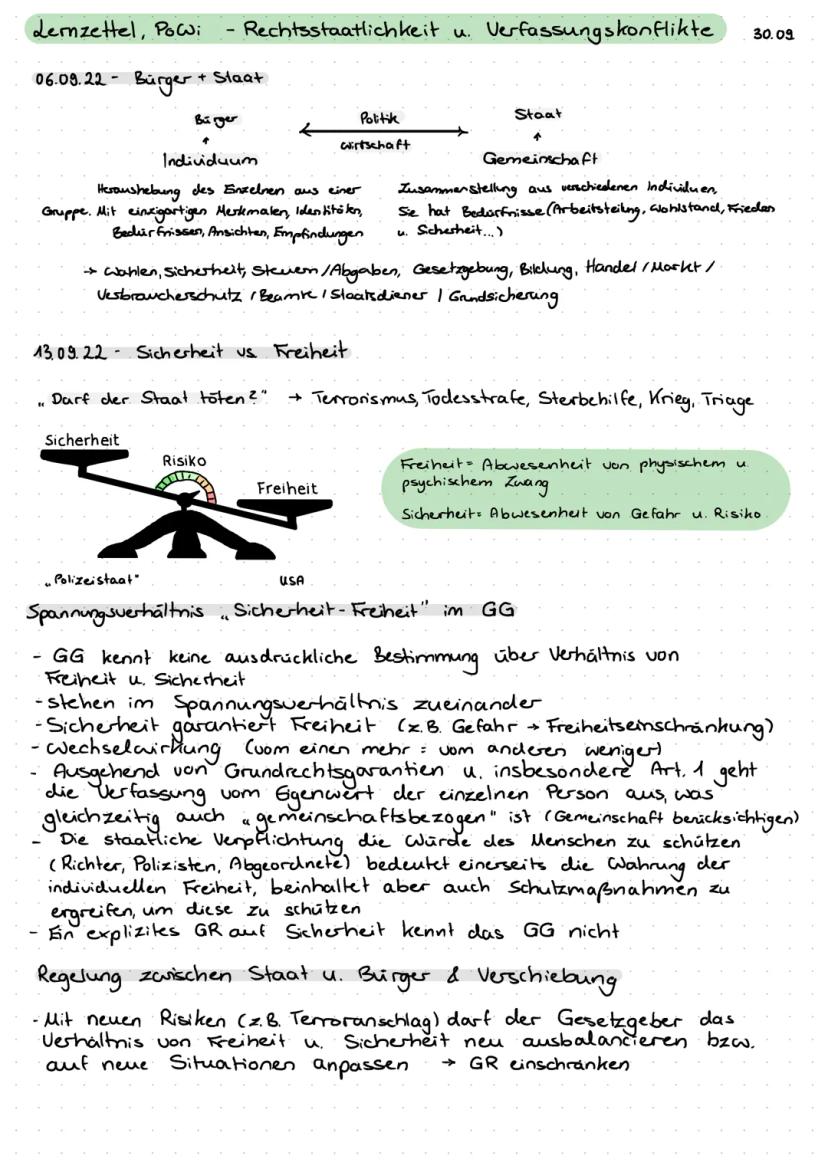 Lernzettel, PoWi - Rechtsstaatlichkeit u. Verfassungskonflikte 30.09
06.09.22 - Bürger + Staat
Bürger Politik Staat
Wirtschaft
Individuum Gemeinschaft
Heraushebung des Einzelnen aus einer
Gruppe. Mit einzigartigen Merkmalen, Identitäten,
Bedürfnissen, Ansichten, Empfindungen
Zusammenstellung aus verschiedenen Individuen,
Sie hat Bedürfnisse (Arbeitsteilung, Wohlstand, Frieden
u. Sicherheit...)
→ Wahlen, Sicherheit, Steuern / Abgaben, Gesetzgebung, Bildung, Handel / Markt /
Verbraucherschutz / Beamte / Staatsdiener / Grundsicherung
13.09.22 - Sicherheit vs Freiheit
„Darf der Staat töten?" → Terrorismus, Todesstrafe, Sterbehilfe, Krieg, Triage
Sicherheit
Risiko
Freiheit
„Polizeistaat" USA
Freiheit = Abwesenheit von physischem u.
psychischem Zwang
Sicherheit = Abwesenheit von Gefahr u. Risiko
Spannungsverhältnis „Sicherheit - Freiheit" im GG
- GG kennt keine ausdrückliche Bestimmung über Verhältnis von
Freiheit u. Sicherheit
- stehen im Spannungsverhältnis zueinander
- Sicherheit garantiert Freiheit (z.B. Gefahr → Freiheitseinschränkung)
- Wechselwirkung (vom einen mehr = vom anderen weniger)
- Ausgehend von Grundrechtsgarantien u. insbesondere Art. 1 geht
die Verfassung vom Eigenwert der einzelnen Person aus, was
gleichzeitig auch „gemeinschaftsbezogen" ist (Gemeinschaft berücksichtigen)
- Die staatliche Verpflichtung die Würde des Menschen zu schützen
(Richter, Polizisten, Abgeordnete) bedeutet einerseits die Wahrung der
individuellen Freiheit, beinhaltet aber auch Schutzmaßnahmen zu
ergreifen, um diese zu schützen
- Ein explizites GR auf Sicherheit kennt das GG nicht
Regelung zwischen Staat u. Bürger & Verschiebung
- Mit neuen Risiken (z.B. Terroranschlag) darf der Gesetzgeber das
Verhältnis von Freiheit u. Sicherheit neu ausbalancieren bzw.
auf neue Situationen anpassen → GR einschränken